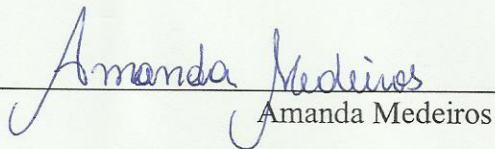 Amanda Medeiros
Amanda Medeiros